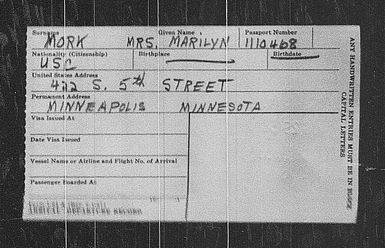 Surname Given Name Passport Number
MORK MRS. MARILYN 1110468
Nationality (Citizenship) Birthplace Birthdate
USC
United States Address
472 S. 5th STREET
Permanent Address
MINNEAPOLIS MINNESOTA
Visa Issued At
Date Visa Issued
Vessel Name or Airline and Flight No. of Arrival
Passenger Boarded At
ANY HANDWRITTEN ENTRIES MUST BE IN BLOCK
CAPITAL LETTERS